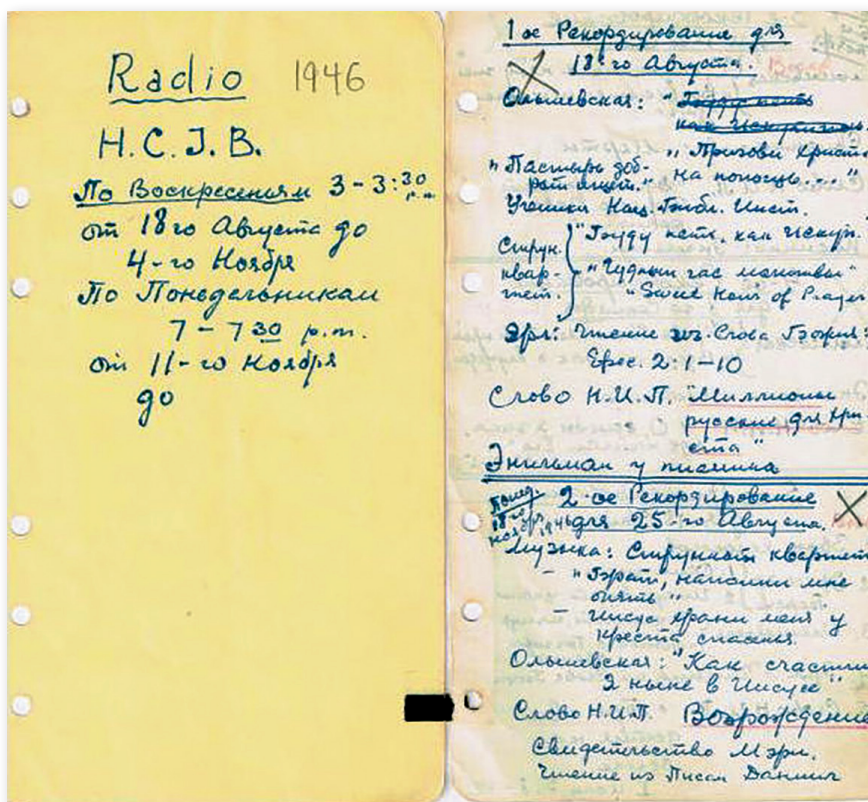 Radio 1946
H.C.J.B.
По Воскресеньям 3-3:30 p.m.
от 18го Августа до
4-го Ноября
По Понедельникам
7-7 30 p.m.
от 11-го Ноября
до
1ое Рекордирование для
18-го Августа.
Ольшевская: "Буду петь
как Искупитель
"Пастырь доб- "Призови Христа
рый ищет." на помощь..."
Ученики Нац. Библ. Инст.
Струн. "Буду петь, как Искуп.
квар- "Чудный час молитвы"
тет. "Sweet Hour of Prayer
Чтение из Слова Божия:
Ефес. 2:1-10
Слово Н.И.П. "Миллионы
русские для Хри-
ста"
у пианина
Понед. 2-ое Рекордирование
18го Ноября 1946 для 25-го Августа.
Музыка: Струнный квартет
- "Брат, напомни мне
опять"
- Иисус храни меня у
креста спасения.
Ольшевская: "Как счастлив
я ныне в Иисусе"
Слово Н.И.П. Возрождение
Свидетельство Мэри.
Чтение из Писан Даниил